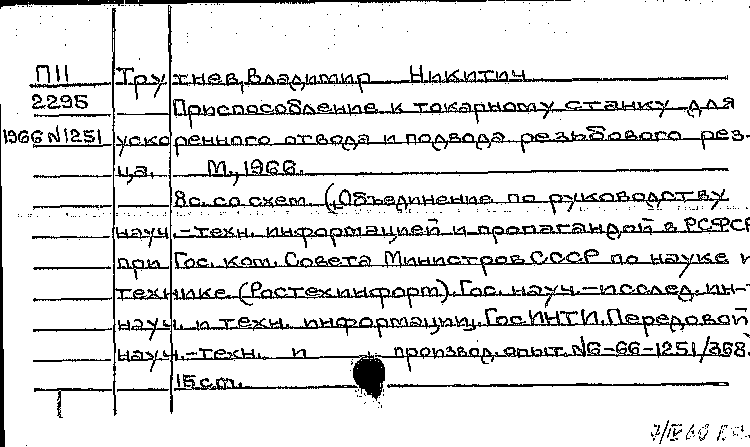 П11 Трутнев, Владимир Никитич
2295 Приспособление к токарному станку для
1966 N1251 ускоренного отвода и подвода резьбового рез-
ца. М., 1966.
8с. со схем. („Объединение по руководству
науч.-техн. информацией и пропагандой в РСФСР
при Гос. ком. Совета Министров СССР по науке и
технике (Ростехинформ). Гос. науч.-исслед. ин-т
науч. и техн. информации. ГосИНТИ. Передовой
науч.-техн. и производ. опыт. N6-66-1251/368.
15 см.